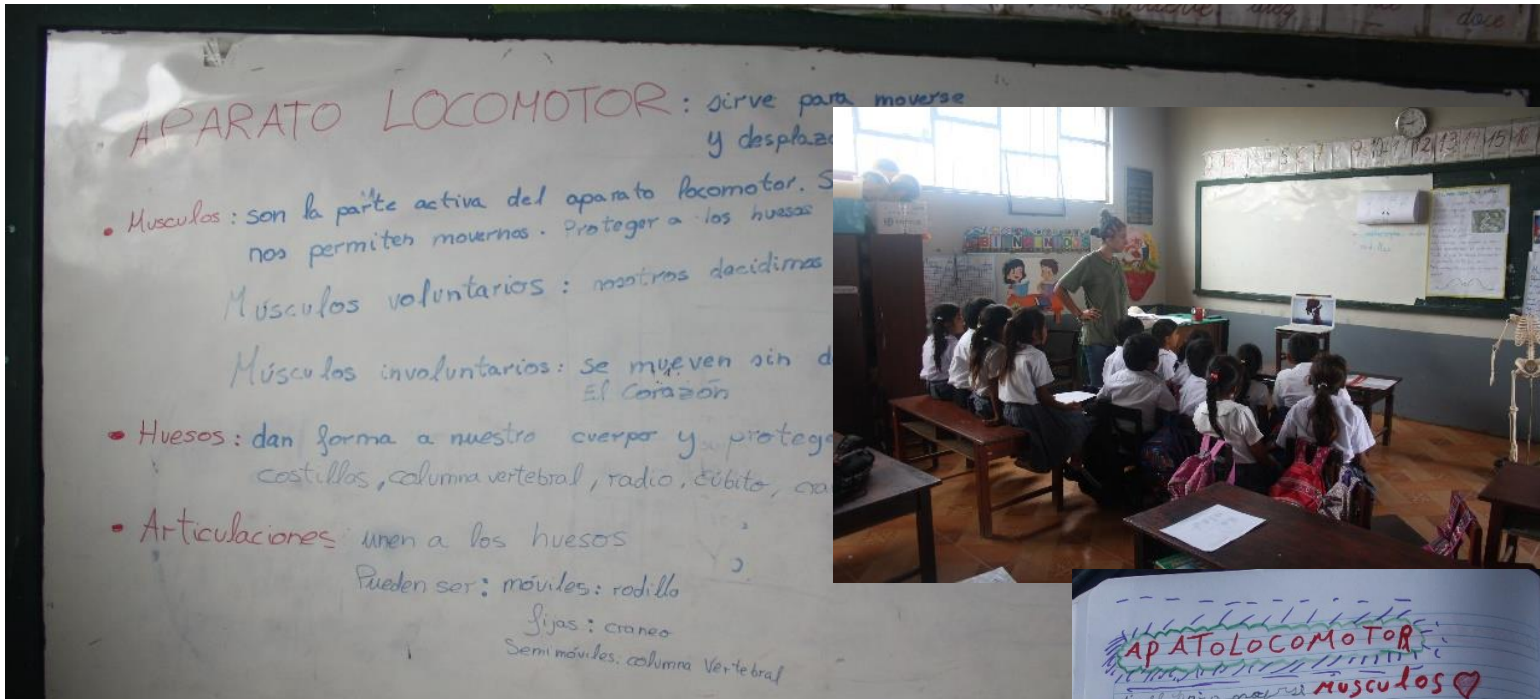 doce
APARATO LOCOMOTOR: sirve para moverse
y desplaza
• Musculos: son la parte activa del aparato locomotor. S
nos permiten movernos. Proteger a los huesos
Músculos voluntarios: nosotros decidimos
Músculos involuntarios: se mueven sin d
El Corazón
• Huesos: dan forma a nuestro cuerpo y protege
costillas, columna vertebral, radio, cúbito, cra
• Articulaciones unen a los huesos
Pueden ser: móviles: rodilla
fijas: craneo
Semimóviles: columna Vertebral
BIENVENIDOS
9 10 11 12 13 14 15 16
APATOLOCOMOTOR
moverse MUSCULOS